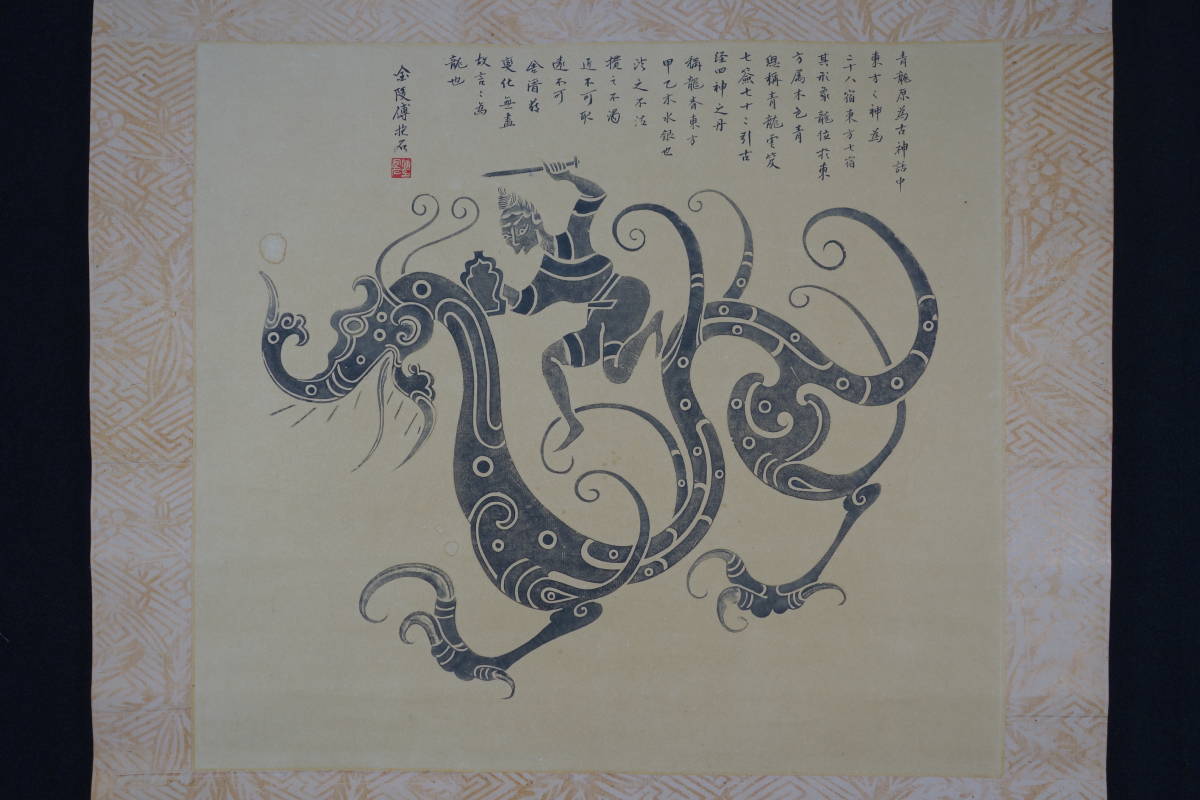 青龍原為古神話中
東方之神為
二十八宿東方七宿
其形象龍位於東
方属木色青
總稱青龍雲笈
七籤七十二引古
經四神之丹
稱龍者東方
甲乙木水銀也
澄之不清
攪之不濁
近不可取
遠不可
舍潛藏
變化無盡
故言之為
龍也
金陵傅抱石